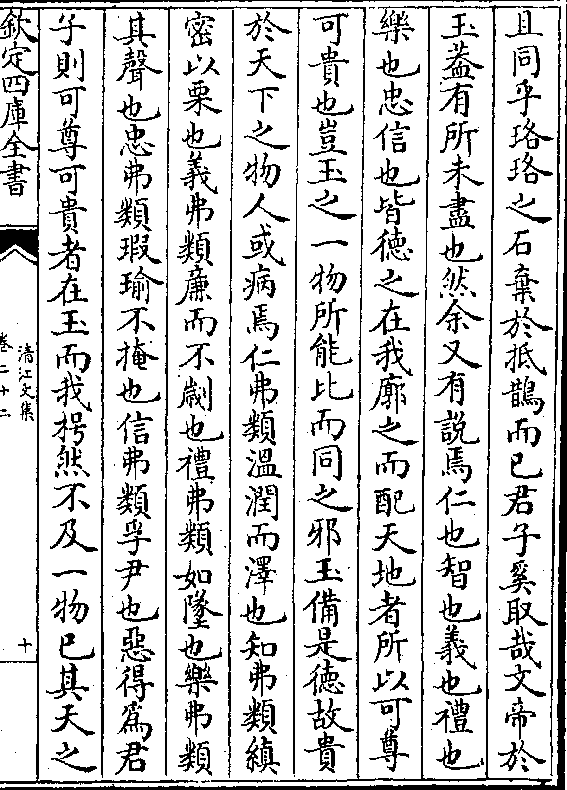 且同乎珞珞之石棄於抵鵲而已君子奚取哉文帝於
玉葢有所未盡也然余又有說焉仁也智也義也禮也
樂也忠信也皆德之在我廓之而配天地者所以可尊
可貴也豈玉之一物所能比而同之邪玉備是德故貴
於天下之物人或病焉仁弗類溫潤而澤也知弗類縝
密以栗也義弗類廉而不劌也禮弗類如墜也樂弗類
其聲也忠弗類瑕瑜不掩也信弗類孚尹也惡得為君
子則可尊可貴者在玉而我枵然不及一物已其天之
欽定四庫全書
清江文集
卷二十二
十